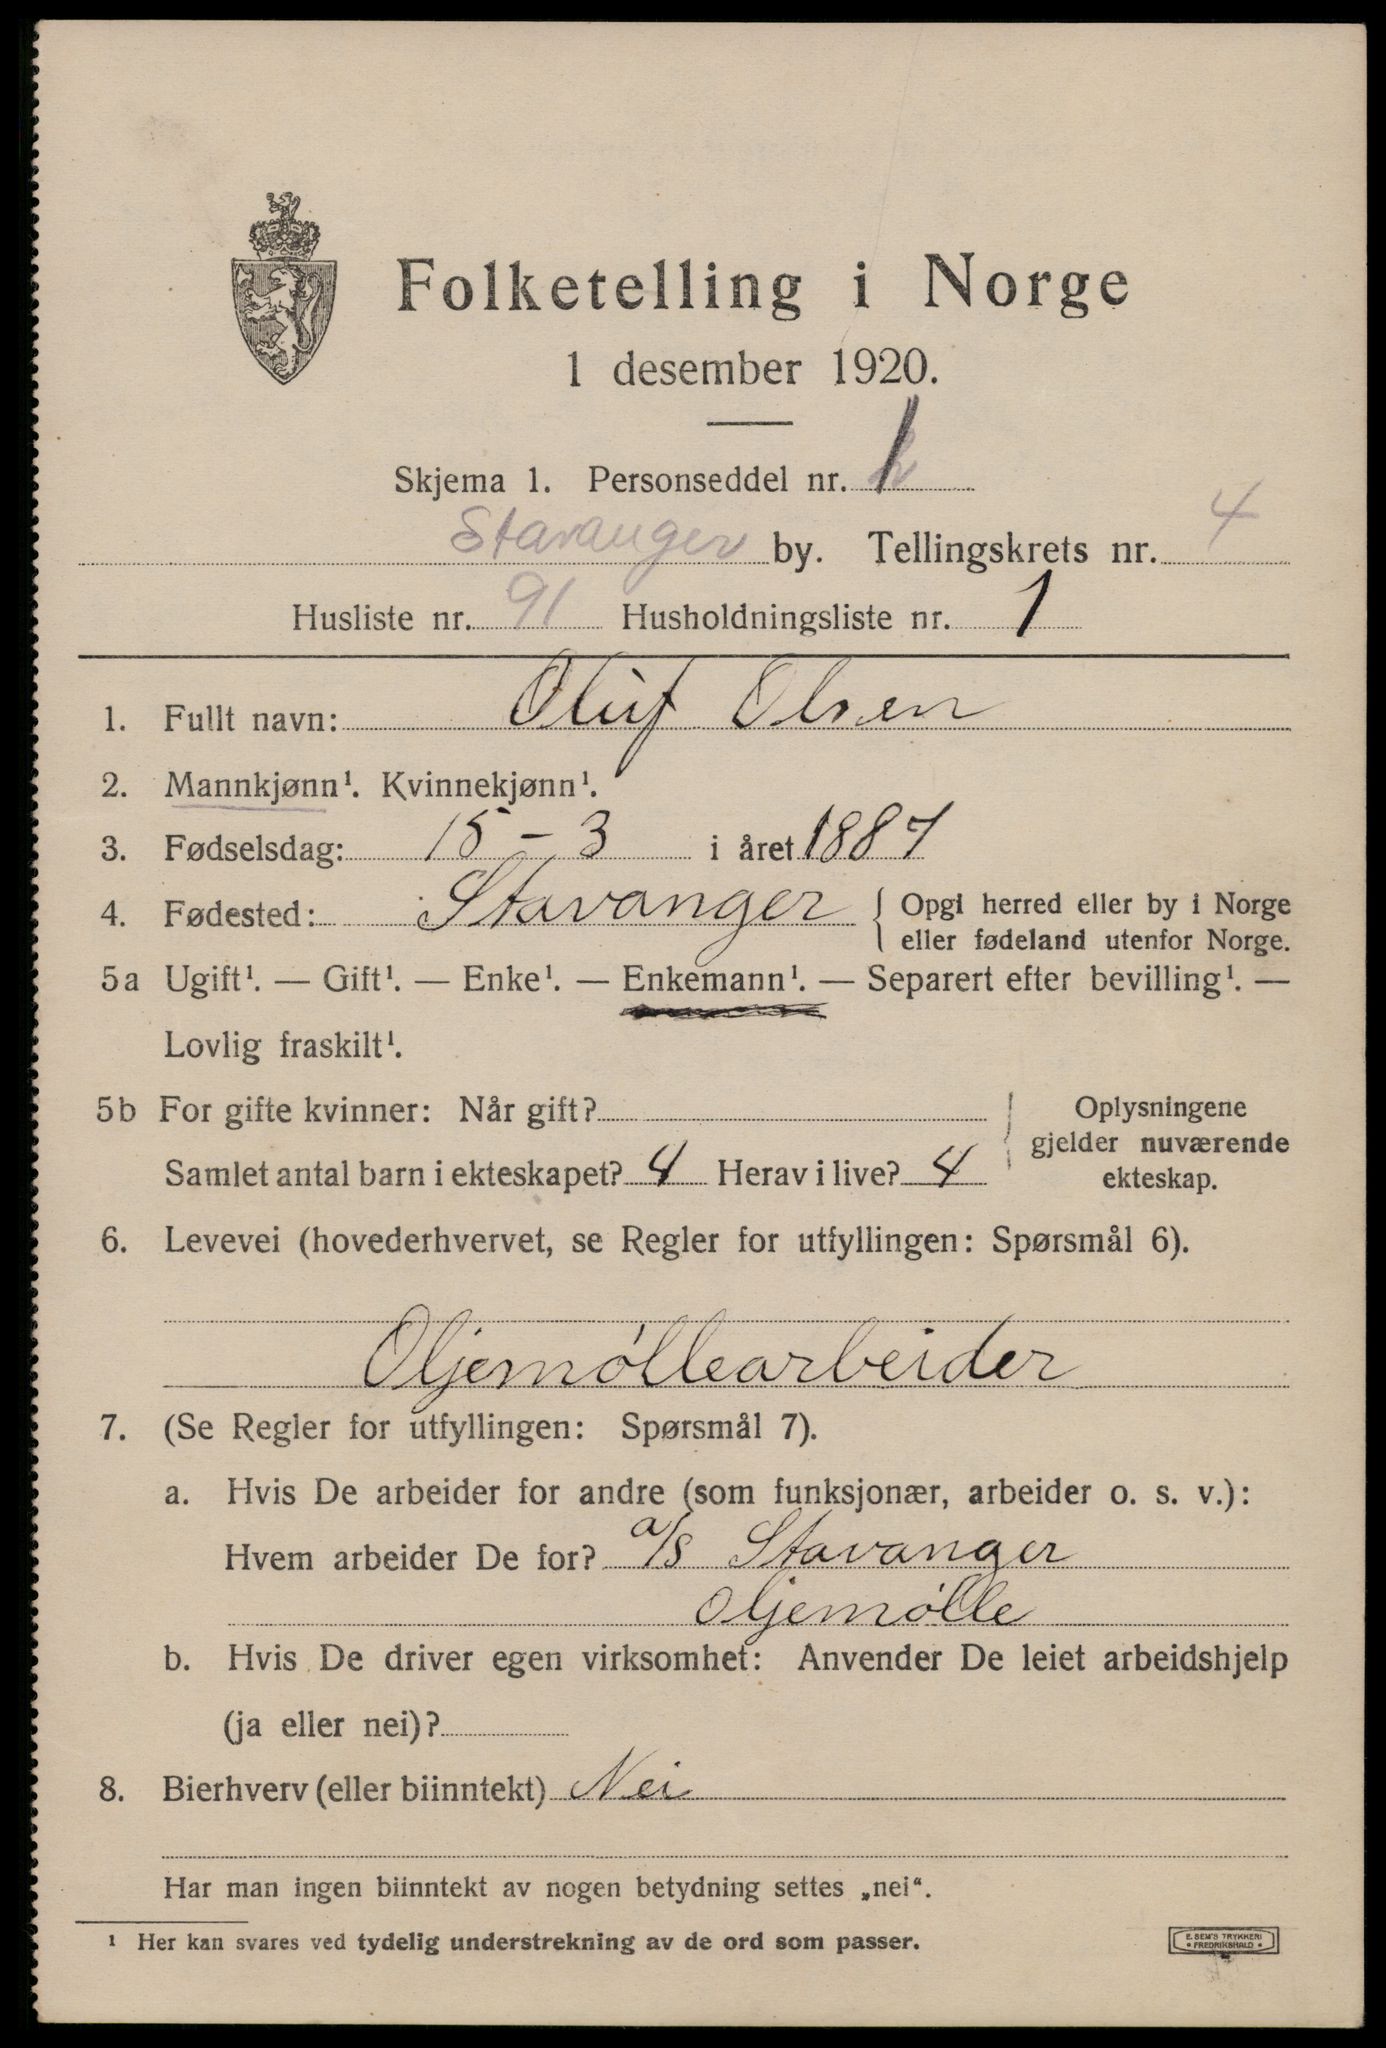 Folketelling i Norge
1 desember 1920.
Skjema 1. Personseddel nr. 1
Stavanger by. Tellingskrets nr. 4
Husliste nr. 91 Husholdningsliste nr. 1
1. Fullt navn: Oluf Olsen
2. Mannkjønn¹. Kvinnekjønn¹.
3. Fødselsdag: 15 - 3 i året 1887
4. Fødested: Stavanger { Opgi herred eller by i Norge
eller fødeland utenfor Norge.
5a Ugift¹. — Gift¹. — Enke¹. — Enkemann¹. — Separert efter bevilling¹. —
Lovlig fraskilt¹.
5b For gifte kvinner: Når gift? Oplysningene
gjelder nuværende
Samlet antal barn i ekteskapet? 4 Herav i live? 4 ekteskap.
6. Levevei (hovederhvervet, se Regler for utfyllingen: Spørsmål 6).
Oljemøllearbeider
7. (Se Regler for utfyllingen: Spørsmål 7).
a. Hvis De arbeider for andre (som funksjonær, arbeider o. s. v.):
Hvem arbeider De for? a/s Stavanger
Oljemølle
b. Hvis De driver egen virksomhet: Anvender De leiet arbeidshjelp
(ja eller nei)?
8. Bierhverv (eller biinntekt) Nei
Har man ingen biinntekt av nogen betydning settes „nei“.
¹ Her kan svares ved tydelig understrekning av de ord som passer.
E. SEM'S TRYKKERI
• FREDRIKSHALD •